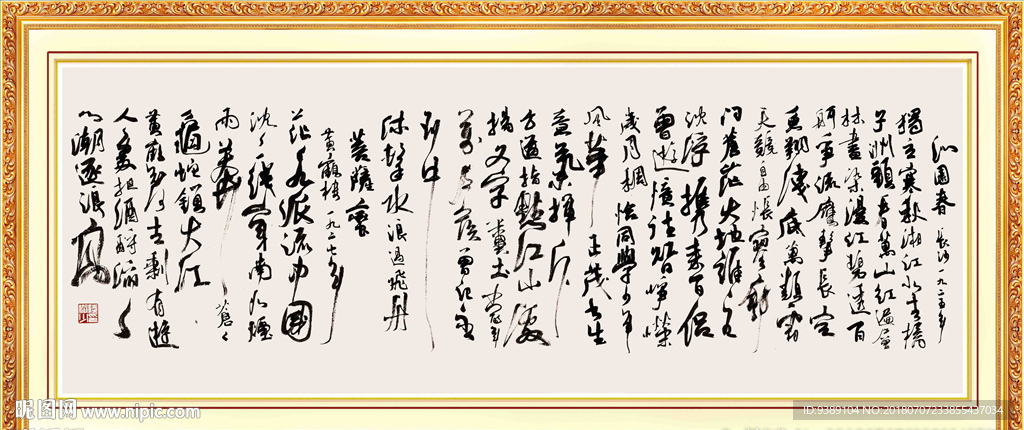 沁園春 長沙 一九二五年
獨立寒秋湘江北去橘
子洲頭看萬山紅遍層
林盡染漫江碧透百
舸爭流鷹擊長空
魚翔淺底萬類霜
天競自由悵寥廓
問蒼茫大地誰主
沈浮攜來百侶
曾遊憶往昔崢嶸
歲月稠恰同學少年
風華正茂書生
意氣揮斥
方遒指點江山激
揚文字糞土當年
萬戶侯曾記否
到中
流擊水浪遏飛舟
菩薩蠻
黃鶴樓 一九二七年
茫茫九派流中國
沈々一線穿南北煙
雨莽蒼々
龜蛇鎖大江
黃鶴知何去剩有遊
人處把酒酹滔々
心潮逐浪高
昵图网 www.nipic.com
ID:9389104 NO:20180707233855437034